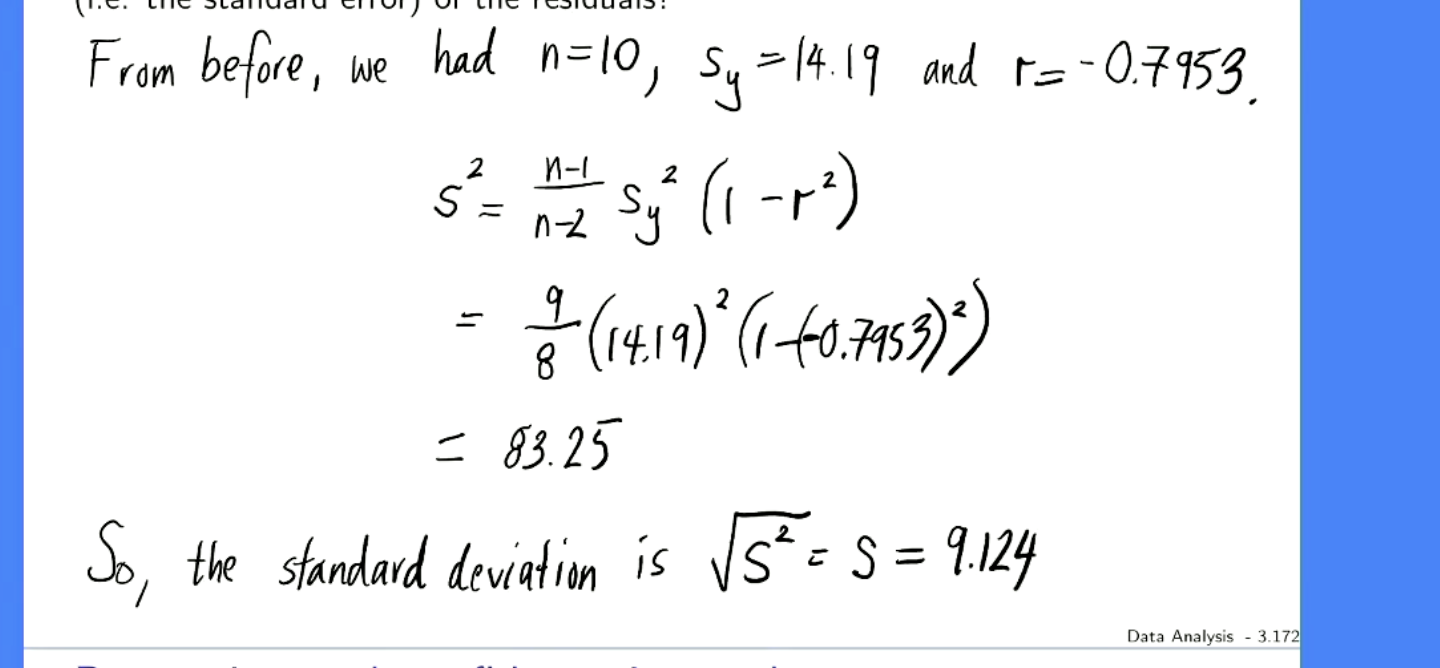 (i.e. the standard error) of the residuals?
From before, we had n=10, sy=14.19 and r=-0.7953.
s² = n-1/n-2 sy² (1-r²)
= 9/8 (14.19)² (1-(-0.7953)²)
= 83.25
So, the standard deviation is √s² = s = 9.124
Data Analysis - 3.172